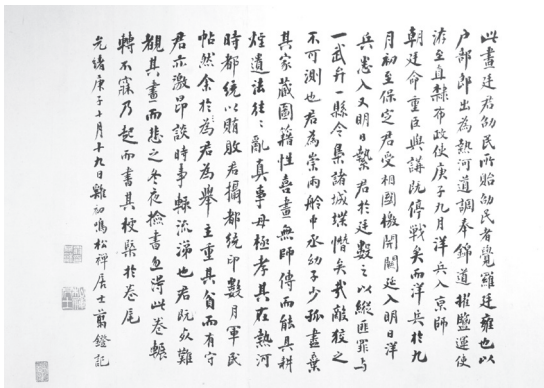 此畫廷君劭民所貽劭民者覺羅廷雍也以
户部郎出為熱河道調奉錦道擢鹽運使
洊至直隸布政使庚子九月洋兵入京師
朝廷命重臣與講既停戰矣而洋兵於九
月初至保定君受相國檄開關延入明日洋
兵悉入又明日縶君於廷數之以縱匪罪与
一武弁一縣令梟諸城堞憯矣哉敵狡之
不可測也君為崇雨舲中丞幼子少孤盡棄
其家藏圖籍性喜畫無師傳而能具耕
煙遺法往〻亂真事母極孝其在熱河
時都統以賄敗君攝都統印數月軍民
帖然余於為君為舉主重其貧而有守
君亦激昂談時事輒流涕也君既及難
觀其畫而悲之冬夜撿書忽得此卷輾
轉不寐乃起而書其梗槩於卷尾
光緒庚子十月十九日雞初鳴松禪居士翦鐙記